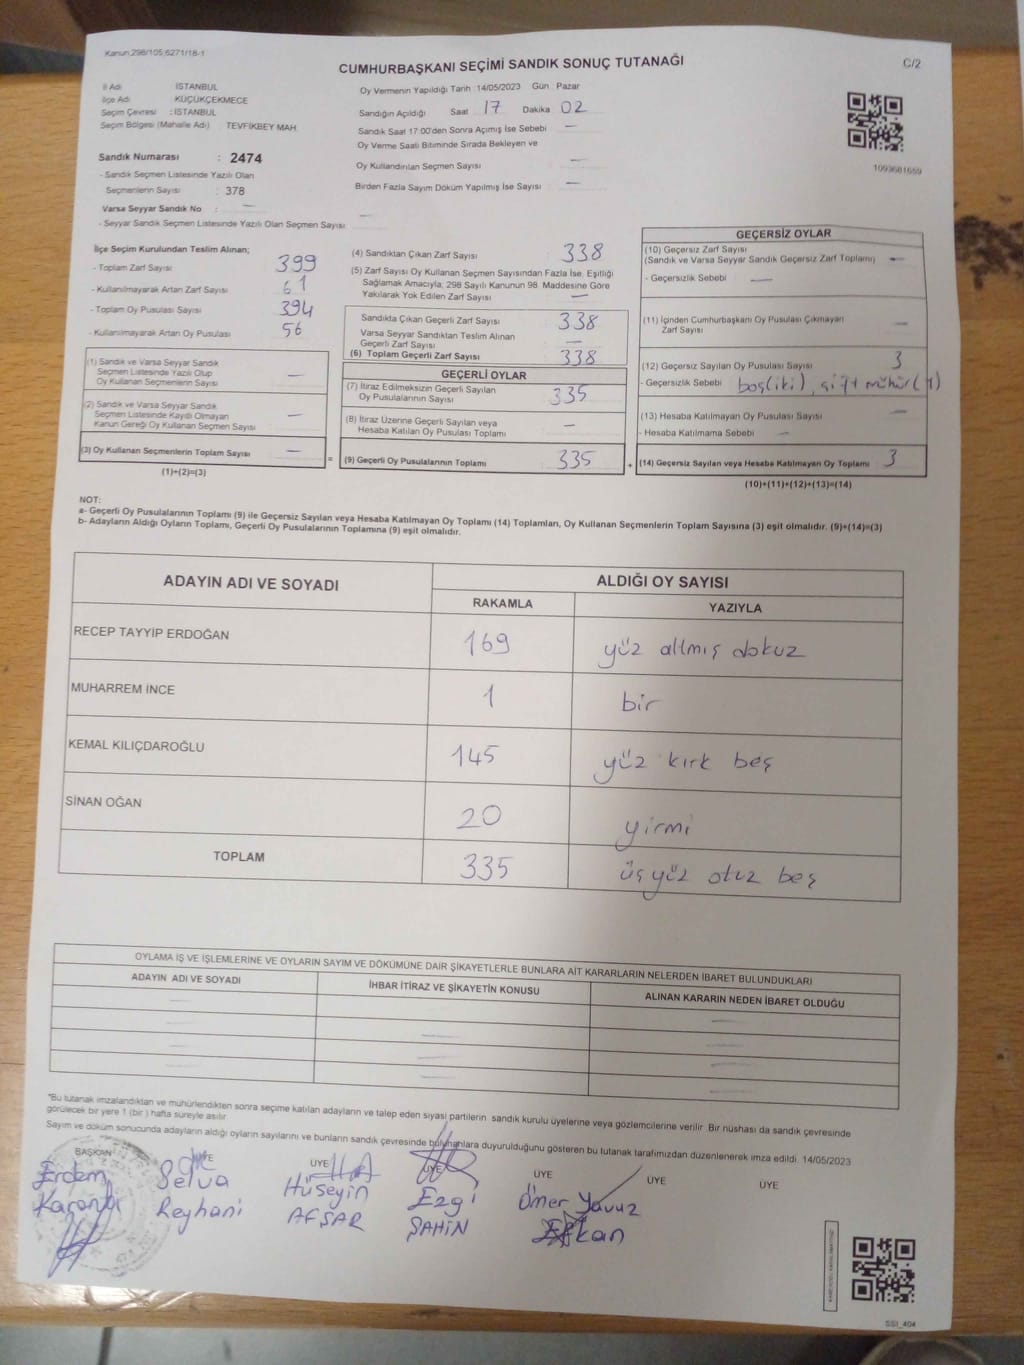 Kanun:298/105;6271/18-1
CUMHURBAŞKANI SEÇİMİ SANDIK SONUÇ TUTANAĞI
C/2
İl Adı : İSTANBUL
İlçe Adı : KÜÇÜKÇEKMECE
Seçim Çevresi : İSTANBUL
Seçim Bölgesi (Mahalle Adı) : TEVFİKBEY MAH.
Sandık Numarası : 2474
- Sandık Seçmen Listesinde Yazılı Olan
Seçmenlerin Sayısı : 378
Varsa Seyyar Sandık No : —
- Seyyar Sandık Seçmen Listesinde Yazılı Olan Seçmen Sayısı : —
Oy Vermenin Yapıldığı Tarih :14/05/2023 Gün : Pazar
Sandığın Açıldığı Saat 17 Dakika 02
Sandık Saat 17:00'den Sonra Açımış İse Sebebi —
Oy Verme Saati Bitiminde Sırada Bekleyen ve
Oy Kullandırılan Seçmen Sayısı —
Birden Fazla Sayım Döküm Yapılmış İse Sayısı —
1093681659
İlçe Seçim Kurulundan Teslim Alınan;
- Toplam Zarf Sayısı 399
- Kullanılmayarak Artan Zarf Sayısı 61
- Toplam Oy Pusulası Sayısı 394
- Kullanılmayarak Artan Oy Pusulası 56
(1) Sandık ve Varsa Seyyar Sandık
Seçmen Listesinde Yazılı Olup
Oy Kullanan Seçmenlerin Sayısı —
(2) Sandık ve Varsa Seyyar Sandık
Seçmen Listesinde Kayıtlı Olmayan
Kanun Gereği Oy Kullanan Seçmen Sayısı —
(3) Oy Kullanan Seçmenlerin Toplam Sayısı —
(1)+(2)=(3)
=
(4) Sandıktan Çıkan Zarf Sayısı 338
(5) Zarf Sayısı Oy Kullanan Seçmen Sayısından Fazla İse, Eşitliği
Sağlamak Amacıyla; 298 Sayılı Kanunun 98. Maddesine Göre
Yakılarak Yok Edilen Zarf Sayısı —
Sandıkta Çıkan Geçerli Zarf Sayısı 338
Varsa Seyyar Sandıktan Teslim Alınan
Geçerli Zarf Sayısı —
(6) Toplam Geçerli Zarf Sayısı 338
GEÇERLİ OYLAR
(7) İtiraz Edilmeksizin Geçerli Sayılan
Oy Pusulalarının Sayısı 335
(8) İtiraz Üzerine Geçerli Sayılan veya
Hesaba Katılan Oy Pusulası Toplamı —
(9) Geçerli Oy Pusulalarının Toplamı 335
+
GEÇERSİZ OYLAR
(10) Geçersiz Zarf Sayısı
(Sandık ve Varsa Seyyar Sandık Geçersiz Zarf Toplamı) —
- Geçersizlik Sebebi —
(11) İçinden Cumhurbaşkanı Oy Pusulası Çıkmayan
Zarf Sayısı —
(12) Geçersiz Sayılan Oy Pusulası Sayısı 3
- Geçersizlik Sebebi boş(iki), çift mühür(1)
(13) Hesaba Katılmayan Oy Pusulası Sayısı —
- Hesaba Katılmama Sebebi —
(14) Geçersiz Sayılan veya Hesaba Katılmayan Oy Toplamı 3
(10)+(11)+(12)+(13)=(14)
NOT:
a- Geçerli Oy Pusulalarının Toplamı (9) ile Geçersiz Sayılan veya Hesaba Katılmayan Oy Toplamı (14) Toplamları, Oy Kullanan Seçmenlerin Toplam Sayısına (3) eşit olmalıdır. (9)+(14)=(3)
b- Adayların Aldığı Oyların Toplamı, Geçerli Oy Pusulalarının Toplamına (9) eşit olmalıdır.
ADAYIN ADI VE SOYADI ALDIĞI OY SAYISI
RAKAMLA YAZIYLA
RECEP TAYYİP ERDOĞAN 169 yüz altmış dokuz
MUHARREM İNCE 1 bir
KEMAL KILIÇDAROĞLU 145 yüz kırk beş
SİNAN OĞAN 20 yirmi
TOPLAM 335 üçyüz otuz beş
OYLAMA İŞ VE İŞLEMLERİNE VE OYLARIN SAYIM VE DÖKÜMÜNE DAİR ŞİKAYETLERLE BUNLARA AİT KARARLARIN NELERDEN İBARET BULUNDUKLARI
ADAYIN ADI VE SOYADI İHBAR İTİRAZ VE ŞİKAYETİN KONUSU ALINAN KARARIN NEDEN İBARET OLDUĞU
— — —
— — —
— — —
— — —
*Bu tutanak imzalandıktan ve mühürlendikten sonra seçime katılan adayların ve talep eden siyasi partilerin sandık kurulu üyelerine veya gözlemcilerine verilir. Bir nüshası da sandık çevresinde
görülecek bir yere 1 (bir ) hafta süreyle asılır.
Sayım ve döküm sonucunda adayların aldığı oyların sayılarını ve bunların sandık çevresinde bulunanlara duyurulduğunu gösteren bu tutanak tarafımızdan düzenlenerek imza edildi. 14/05/2023
BAŞKAN ÜYE ÜYE ÜYE ÜYE ÜYE ÜYE
Erdem Selva Hüseyin Ezgi Ömer Yavuz
Reyhani AFŞAR ŞAHİN
SSI_404